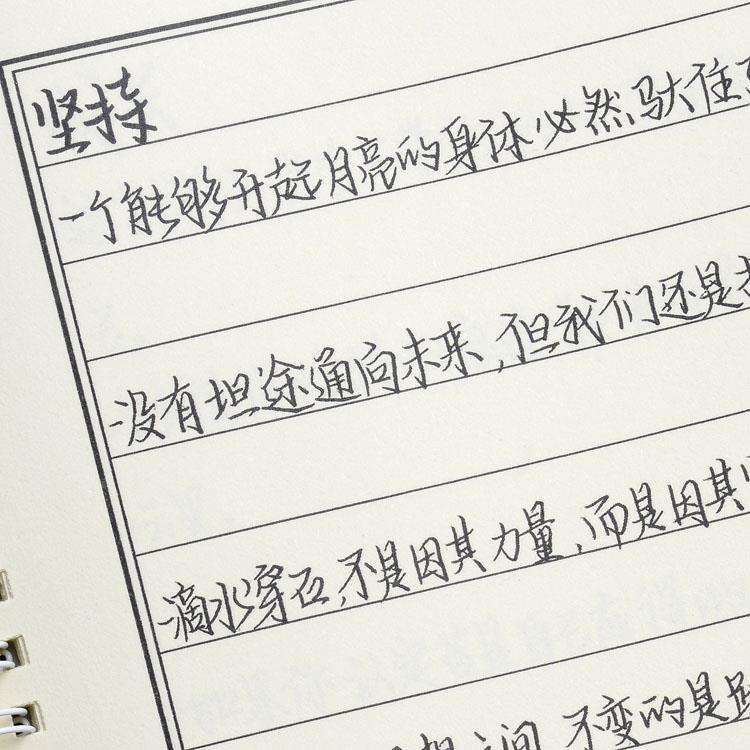 坚持
一个能够开起月亮的身体必然驮住
没有坦途通向未来,但我们还是
滴水穿石,不是因其力量,而是因其
之间,不变的是